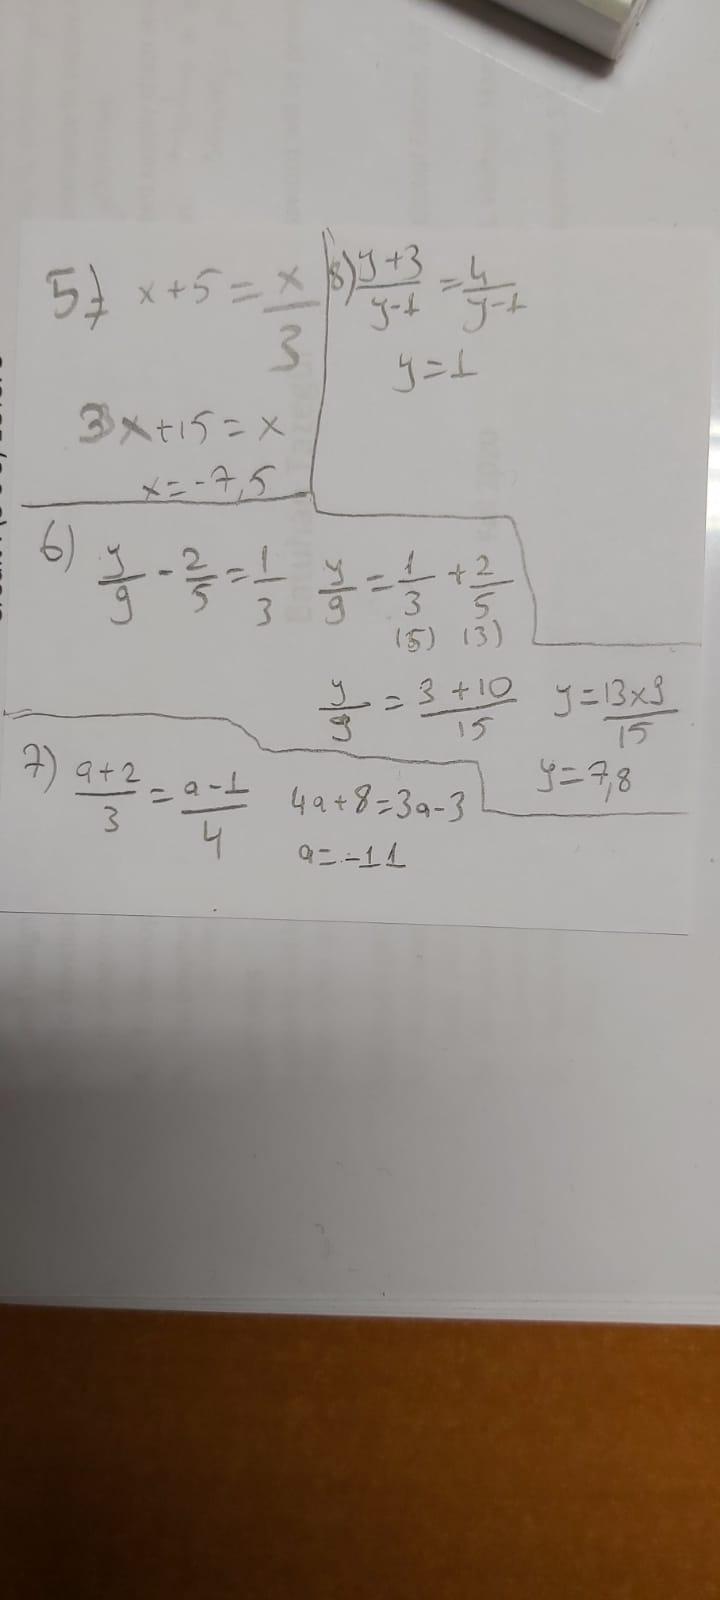 5) x+5 = x/3
3x+15 = x
x = -7,5
8) y+3/y-1 = 4/y-1
y = 1
6) y/9 - 2/5 = 1/3 y/9 = 1/3 + 2/5
(5) (3)
y/9 = 3+10/15 y = 13x9/15
y = 7,8
7) a+2/3 = a-1/4 4a+8 = 3a-3
a = -11